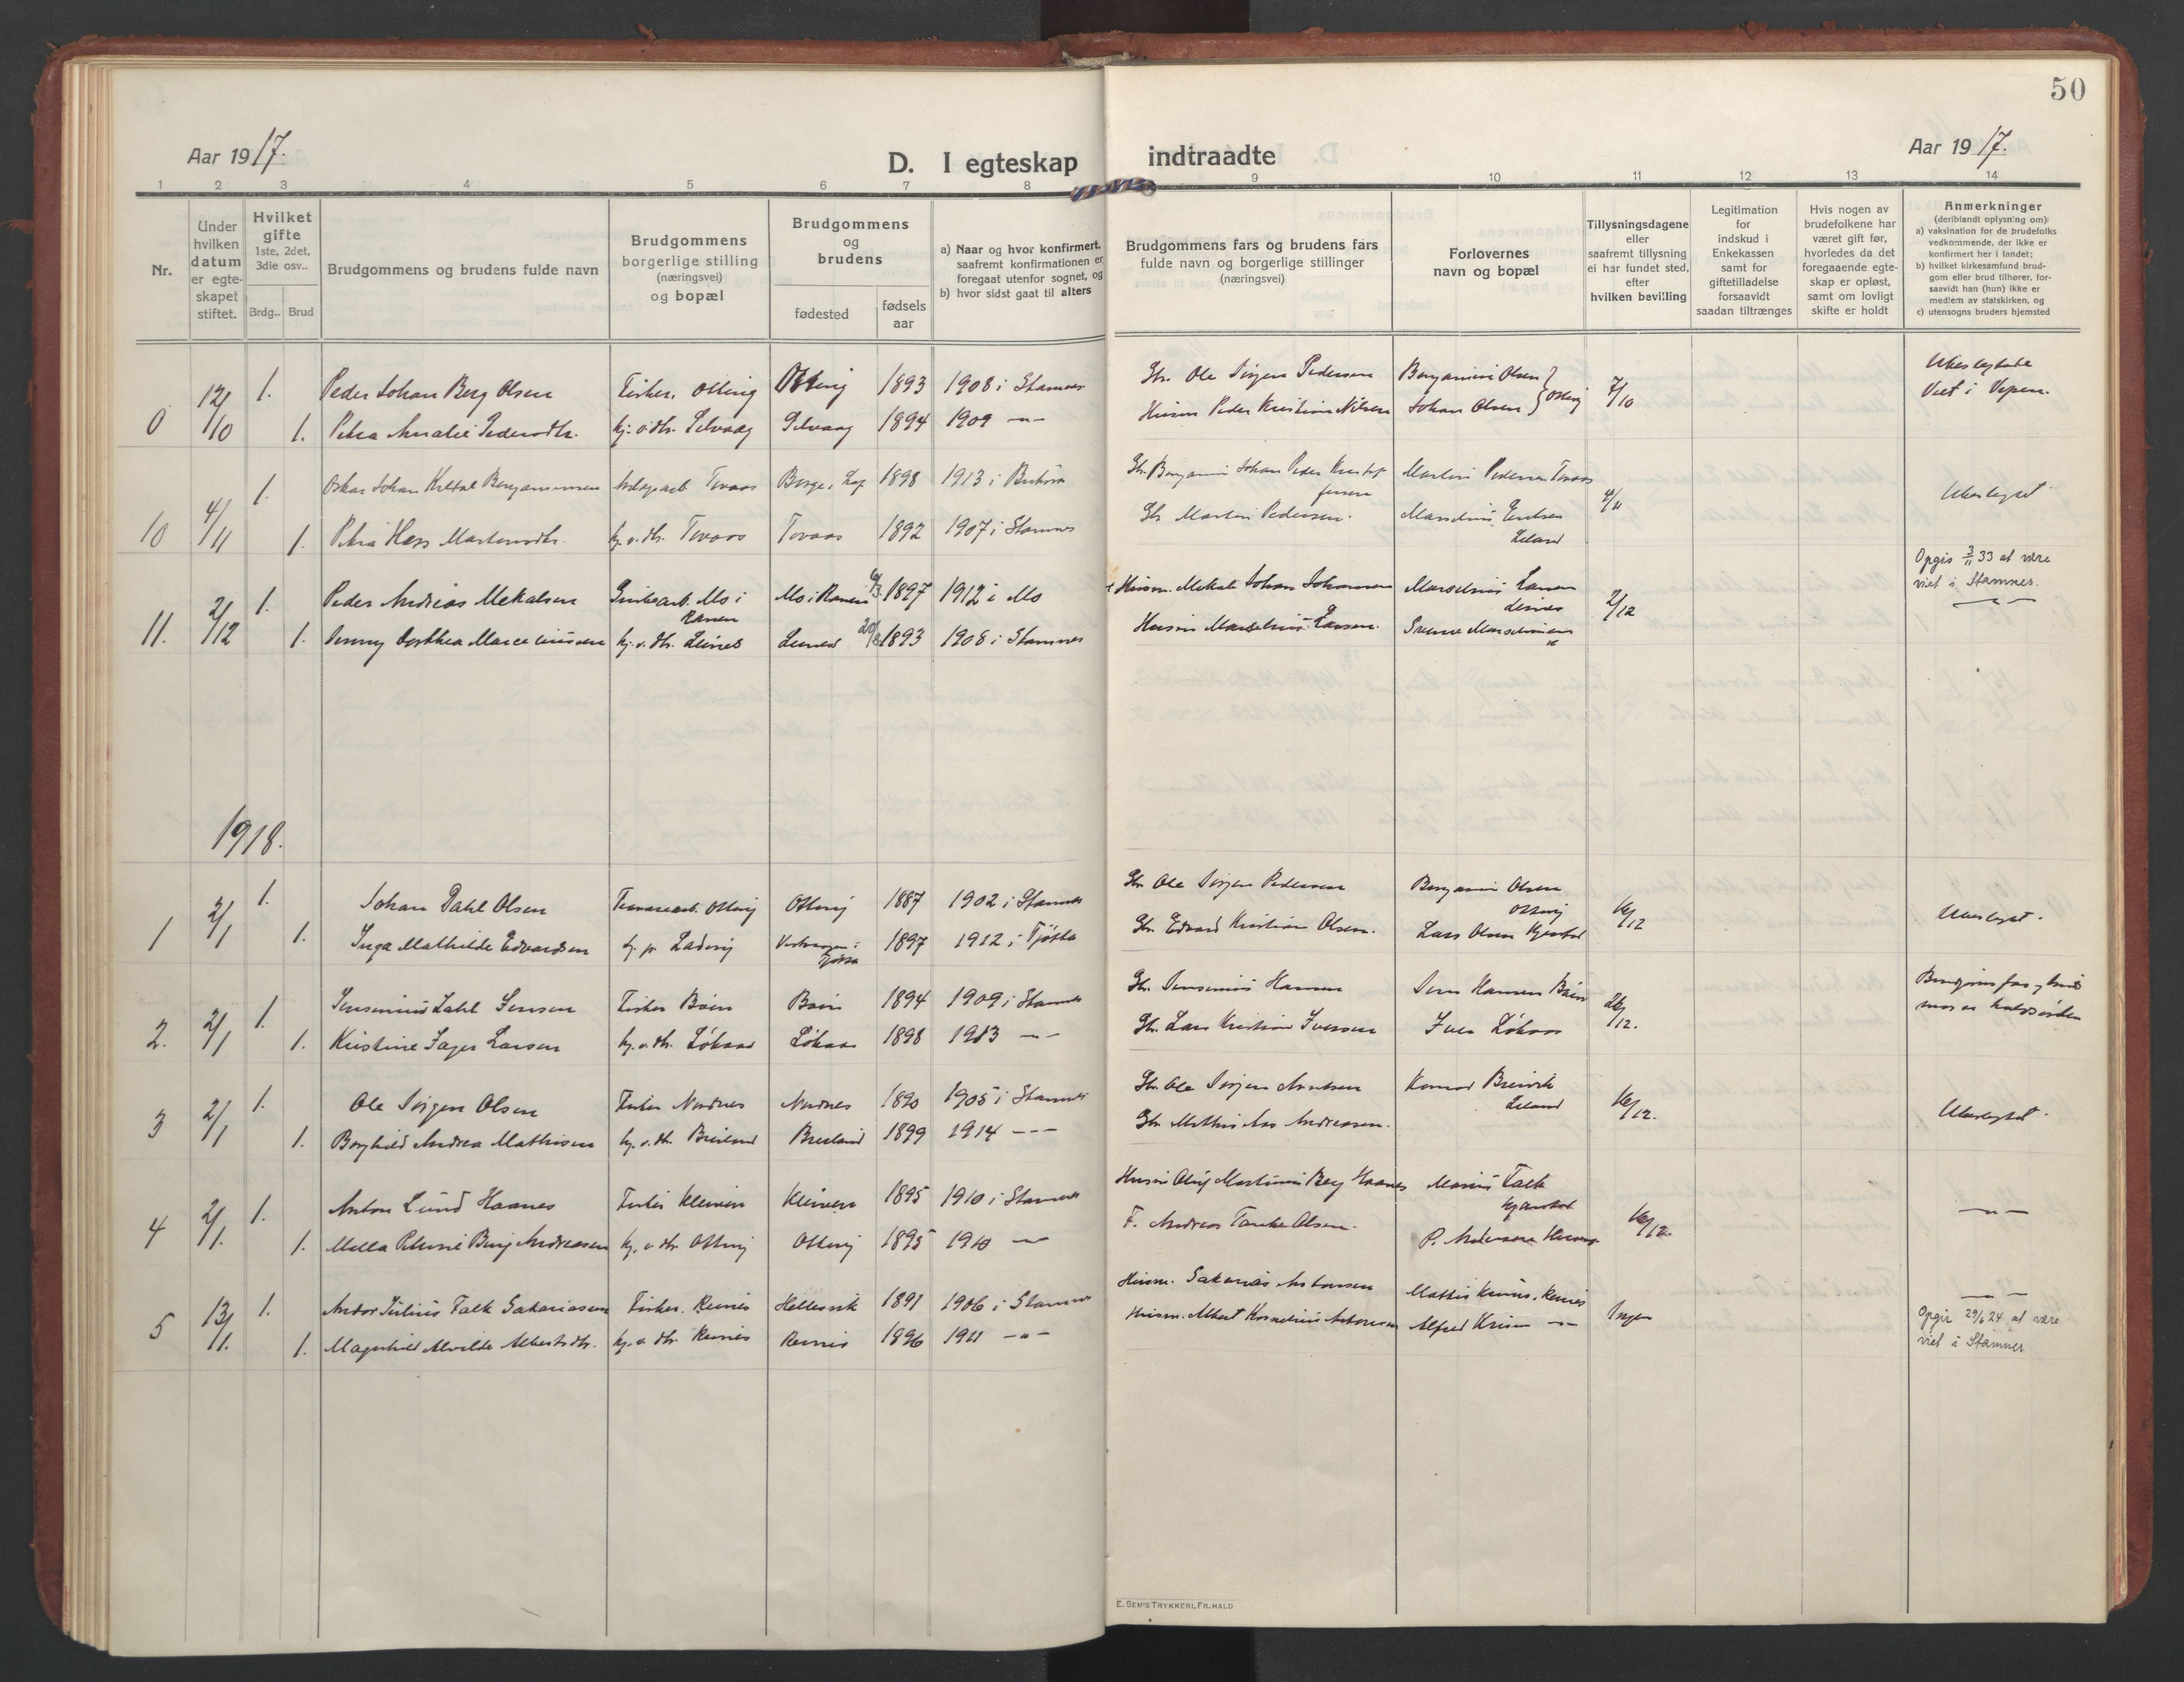 50
Aar 1917.
D. I egteskap indtraadte
Aar 1917.
1 2 3 4 5 6 7 8 9 10 11 12 13 14
Nr.
Under hvilken datum er egteskapet stiftet.
Hvilket gifte
1ste, 2det, 3die osv..
Brdg.. Brud
Brudgommens og brudens fulde navn
Brudgommens borgerlige stilling (næringsvei) og bopæl
Brudgommens og brudens
fødested
fødsels aar
a) Naar og hvor konfirmert, saafremt konfirmationen er foregaat utenfor sognet, og
b) hvor sidst gaat til alters
Brudgommens fars og brudens fars fulde navn og borgerlige stillinger (næringsvei)
Forlovernes navn og bopæl
Tillysningsdagene eller saafremt tillysning ei har fundet sted, efter hvilken bevilling
Legitimation for indskud i Enkekassen samt for giftetilladelse forsaavidt saadan tiltrænges
Hvis nogen av brudefolkene har været gift før, hvorledes da det foregaaende egteskap er opløst, samt om lovligt skifte er holdt
Anmerkninger
(deriblandt oplysning om):
a) vaksination for de brudefolks vedkommende, der ikke er konfirmert her i landet;
b) hvilket kirkesamfund brudgom eller brud tilhører, forsaavidt han (hun) ikke er medlem av statskirken, og
c) utensogns bruders hjemsted
0 12/10 1. Peder Johan Berg Olsen Fisker, Otting Otting 1893 1908 i Stamnes Gbr. Ole Jørgen Pedersen Benjamin Olsen 7/10 Ubeslegtede
1. Petra Amalie Pedersdtr. hj. v. dtr. Selvaag Selvaag 1894 1909 -"- Husm Peder Kristian Nilsen Johan Olsen Otting Viet i Vepen.
10 4/11 1. Oskar Johan Benjaminsen Tovaas Borge i Lof 1898 1913 i Gbr. Benjamin Johan Peder Kristof Martin Pedersen Tovaas 4/11 Ubeslegtet
fersen
1. Petra Hess Martinsdtr. hj. v. dtr. Tovaas Tovaas 1892 1907 i Stamnes Gbr Martin Pedersen. Marselius Eriksen
Leland
11. 2/12 1. Peder Andreas Mekalsen Grubearb. Mo i Ranen Mo i Ranen 6/3 1897 1912 i Mo Husm. Mekal Johan Johannesen Marselius Larsen 2/12 Opgis 3/11 33 at være viet i Stamnes.
Leines
1. Jenny Dorthea Marceliussen hj. v. dtr. Leines Leines 1893 1908 i Stamnes Husm Marselius Larsen. -"-
1918.
1 2/1 1. Johan Dahl Olsen Otting Otting 1887 1902 i Stamnes Gbr Ole Jørgen Pedersen Benjamin Olsen Otting 16/12 Ubeslegtet.
1. Inga Mathilde Edvardsen 1897 1912 i Tjøtta Gbr. Edvard Kristian Olsen. Lars Olsen
2. 2/1 1. Jensenius Dahl Jensen Fisker Båen Båen 1894 1909 i Stamnes Gbr. Jensenius Hansen Jens Hansen Båen 26/12.
1. Kristine Jager Larsen hj. v. dtr. Løkaas Løkaas 1898 1913 -"- Gbr. Lars Kristian Iversen Iver Løkaas
3 2/1 1. Ole Jørgen Olsen Fisker Nordnes Nordnes 1890 1905 i Stamnes Gbr. Ole Jørgen Arntsen Konrad Breivik Leland 16/12. Ubeslegtet.
1. Borghild Andrea Mathisen hj. v. dtr Breiland Breiland 1899 1914 -"- Gbr Mathis Aas Andreasen.
4 2/1. 1. Anton Lund Haanes Fisker Kleiven Kleiven 1895 1910 i Stamnes Husm Oluf Martinus Berg Haanes Marius Falk 16/12. -"-
1. Mella Petrine Berg Andreasen hj. v. dtr Otting Otting 1895 1910 -"- F. Andreas Tanke Olsen. P. Andersen
5 13/1. 1. Andor Julius Falk Sakariasen Fisker. Reines Hellesvik 1891 1906 i Stamnes Husm. Sakarias Antonsen Mathis Reines Ingen -"-
1. Magnhild Alvilde Albertsdtr. hj. v. dtr Reines Reines 1896 1911 -"- Husm. Albert Kornelius Antonsen Alfred -"- Opgir 29/6 24 at være viet i Stamnes
E. SEM'S TRYKKERI, FR.HALD